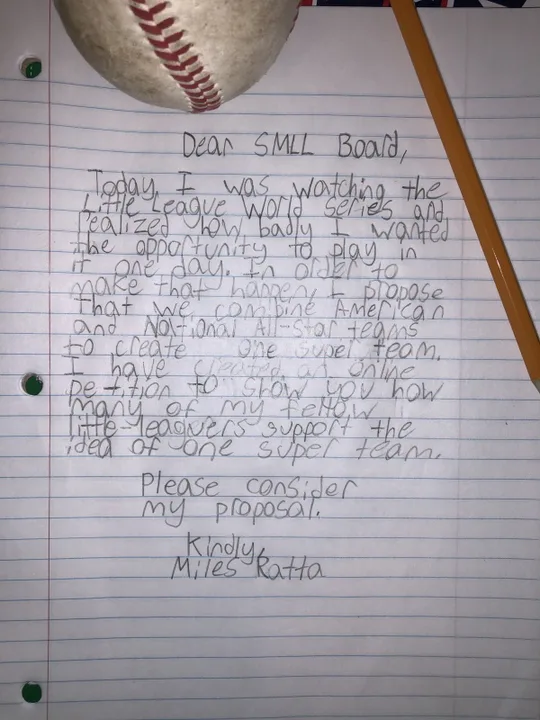 Dear SMLL Board,
Today, I was watching the
Little League World series and
realized how badly I wanted
the opportunity to play in
it one day. In order to
make that happen, I propose
that we combine American
and National All-Star teams
to create one super team.
I have created an online
petition to show you how
many of my fellow
little-leaguers support the
idea of one super team.
Please consider
my proposal.
Kindly,
Miles Ratta